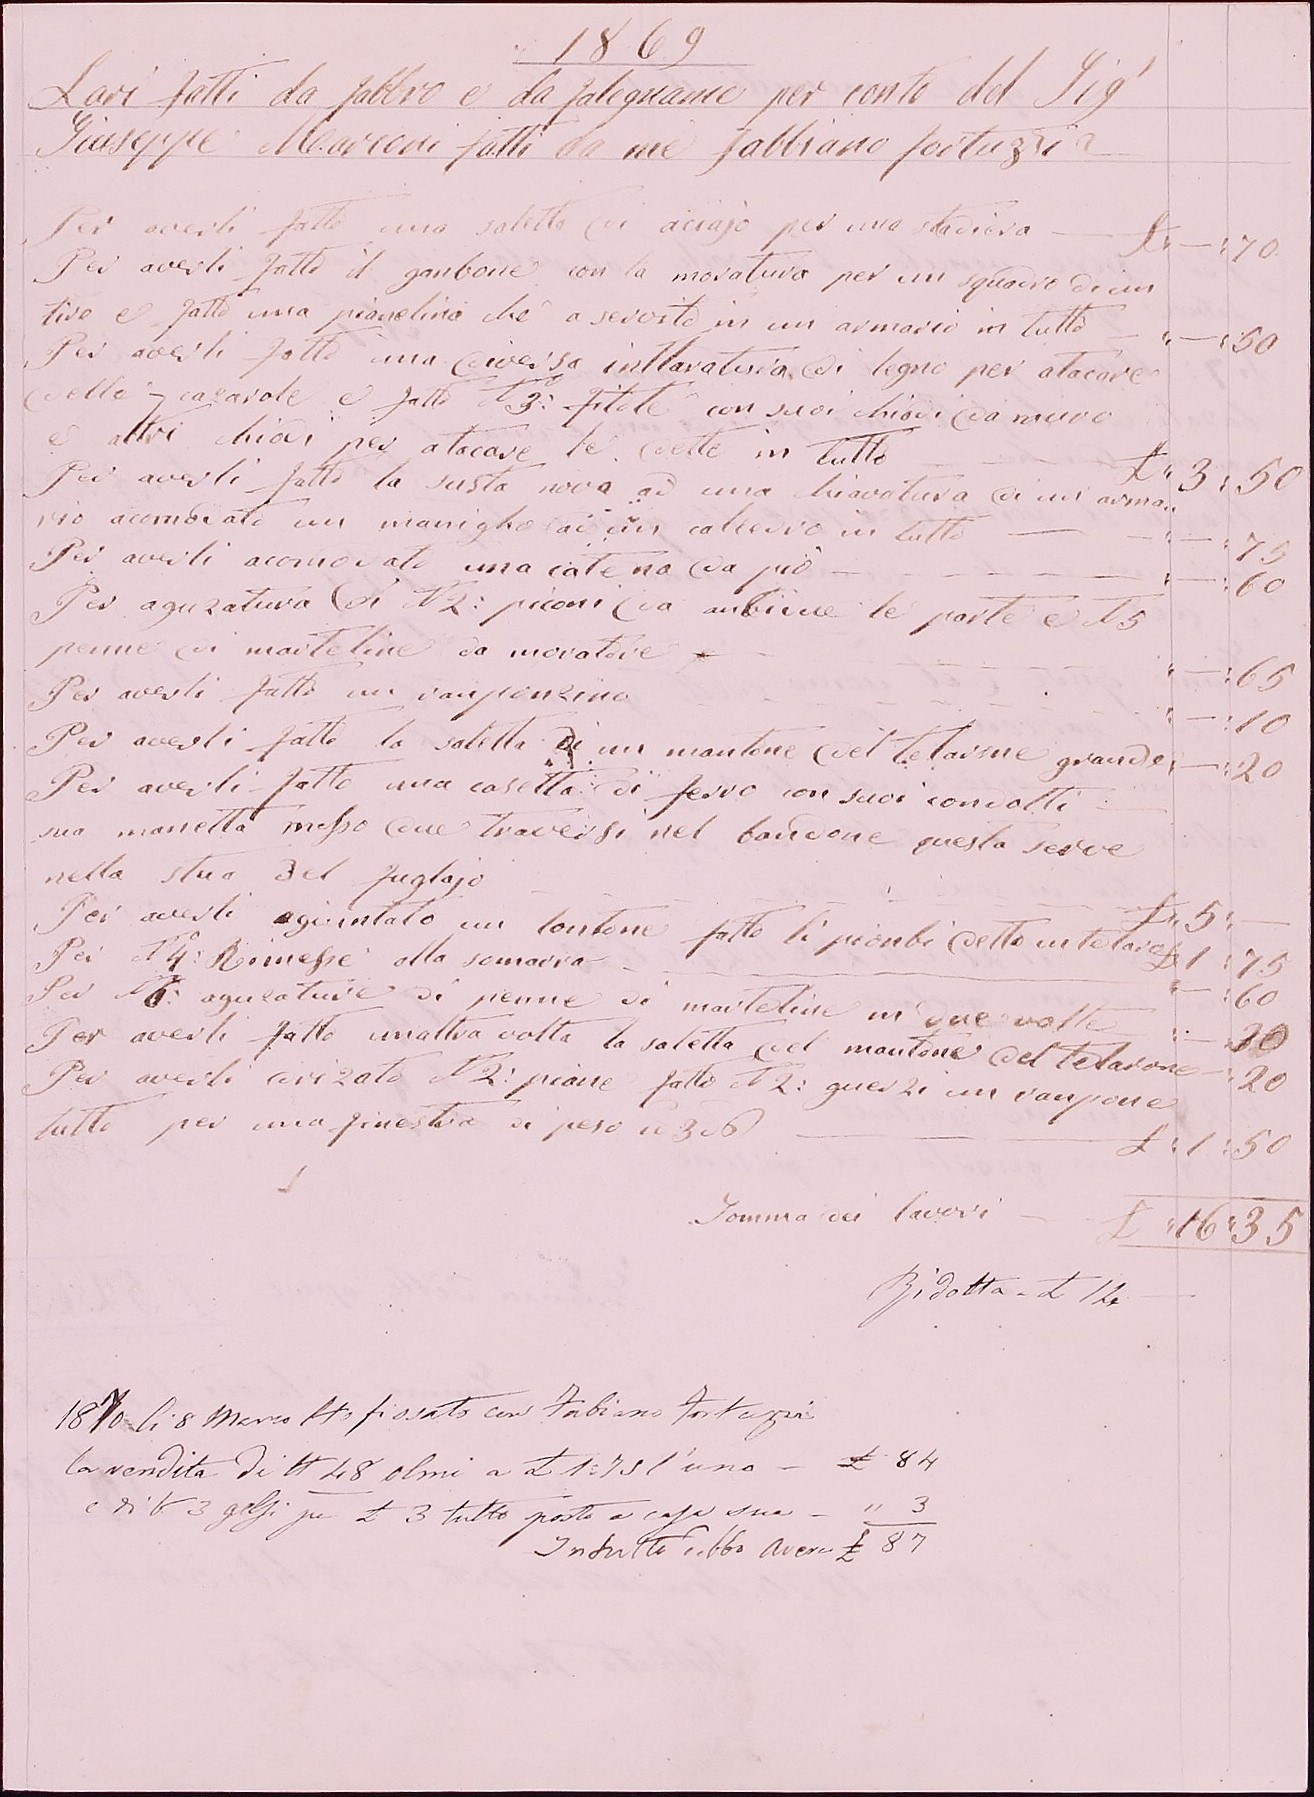 1869
Lavri fatti da fabbro e da falegname per conto del Sigr
Giuseppe Marconi fatti da me fabbiano fortuzzi
Per averli fatto una saletta di aciajo per una stadiera £ " — : 70
Per averli fatto il ganbone con la moratura per un squadro di un
tiro e fatto una pianelina che a servito in un armario in tutto " — : 50
Per averli fatto una diversa di legno per atacare
delle cazarole e fatto N 3: fitole con suoi chiodi da muro
e altri chiodi per atacare le dette in tutto £ " 3 : 50
Per averli fatto la susta nova ad una chiavatura di un arma
rio acomodato un manigho ad un in tutto " — : 75
Per averli acomodato una catena da piò " — : 60
Per aguzatura di N 2: piconi da anbidue le parte e N 5
penne di marteline da moratore " — : 65
Per averli fatto un ranponzino " — : 10
Per averli fatto la saletta di un mantone del telarone grande " — : 20
Per averli fatto una casetta di ferro con suoi condotti
sua manetta messo due traversi nel bandone questa serve
nella stua del fuglajo £ " 5 : —
Per averli agiuntato un fatto li pionbi detto un telaro £ 1 : 75
Per N 4: Rimesse alla somarra " — : 60
Per N 6: aguzature di penne di marteline in due volte " — 30
Per averli fatto unaltra volta la saletta del mantone del telarone — : 20
Per averli drizato N 2: piane fatto N 2: guerzi un ranpone
tutto per una finestra di peso £ " 1 : 50
Somma dei lavori £ " 16 " 35
Ridotta - £ 14
1870 li 8 Marzo Ho fissato con Fabiano Fortuzzi
la vendita di N 48 olmi a £ 1:75 l'uno - £ 84
e di N 3 gelsi per £ 3 tutto posto a casa sua - " 3
In tutto debbo avere £ 87